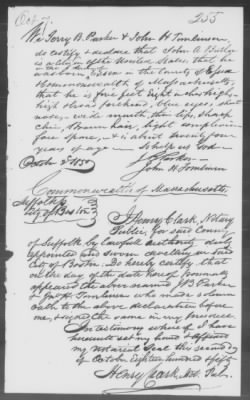 Oct. 7.
255
We Jerry B. Parker & John H. Tomlinson,
do certify & declare that John A.
is a citizen of the United States, that he
was born in in the County of Essex
Commonwealth of Massachusetts,
that he is five feet Eight inches high,
high broad forehead, blue eyes, short
nose, wide mouth, thin lips, sharp
chin, brown hair, light complexion
face spare, & is about twenty four
years of age So help us God
October 2 1850
J B Parker
John H. Tomlinson
Commonwealth of Massachusetts
Suffolk ss
City of Boston
I Henry Clark, Notary
Public, for said County
of Suffolk by Lawfull authority duly
appointed and sworn dwelling in said
City of Boston. Do hereby certify that
on the day of the date hereof personally
appeared the above named J B Parker
& Jno H. Tomlinson who made solemn
oath to the above declaration before
me, & signed the same in my presence
In testimony whereof I have
hereunto set my hand & affixed
my notarial seal this second day
of October Eighteen hundred & fifty
Henry Clark, Not. Pub.